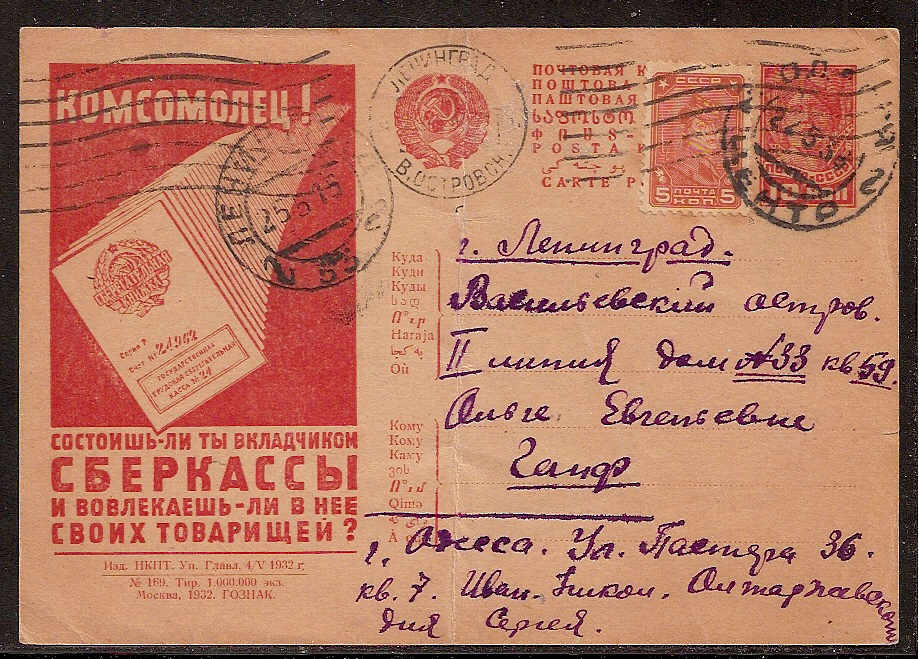 КОМСОМОЛЕЦ!
Серия Р
Счет № 21964
ГОСУДАРСТВЕННАЯ
ТРУДОВАЯ СБЕРЕГАТЕЛЬНАЯ
КАССА № 24
СОСТОИШЬ-ЛИ ТЫ ВКЛАДЧИКОМ
СБЕРКАССЫ
И ВОВЛЕКАЕШЬ-ЛИ В НЕЕ
СВОИХ ТОВАРИЩЕЙ?
Изд. НКПТ. Уп. Главл. 4/V 1932 г.
№ 169. Тир. 1.000.000 экз.
Москва, 1932. ГОЗНАК.
ЛЕНИНГРАД
В.ОСТРОВСК.
ПОЧТОВАЯ К
ПОШТОВА
ПАШТОВАЯ
POSTA
CARTE P
СССР
5 ПОЧТА КОП. 5
Куда
Куди
Куды
სად
Haraja
Кому
Кому
Каму
ვის
Qimə
г. Ленинград.
Васильевский остров.
II линия дом №33 кв 59.
Ольге Евгеньевне
Ганф
г. Одеса. Ул. Пастера 36.
кв. 7. Иван. Никол.
для Сергея.